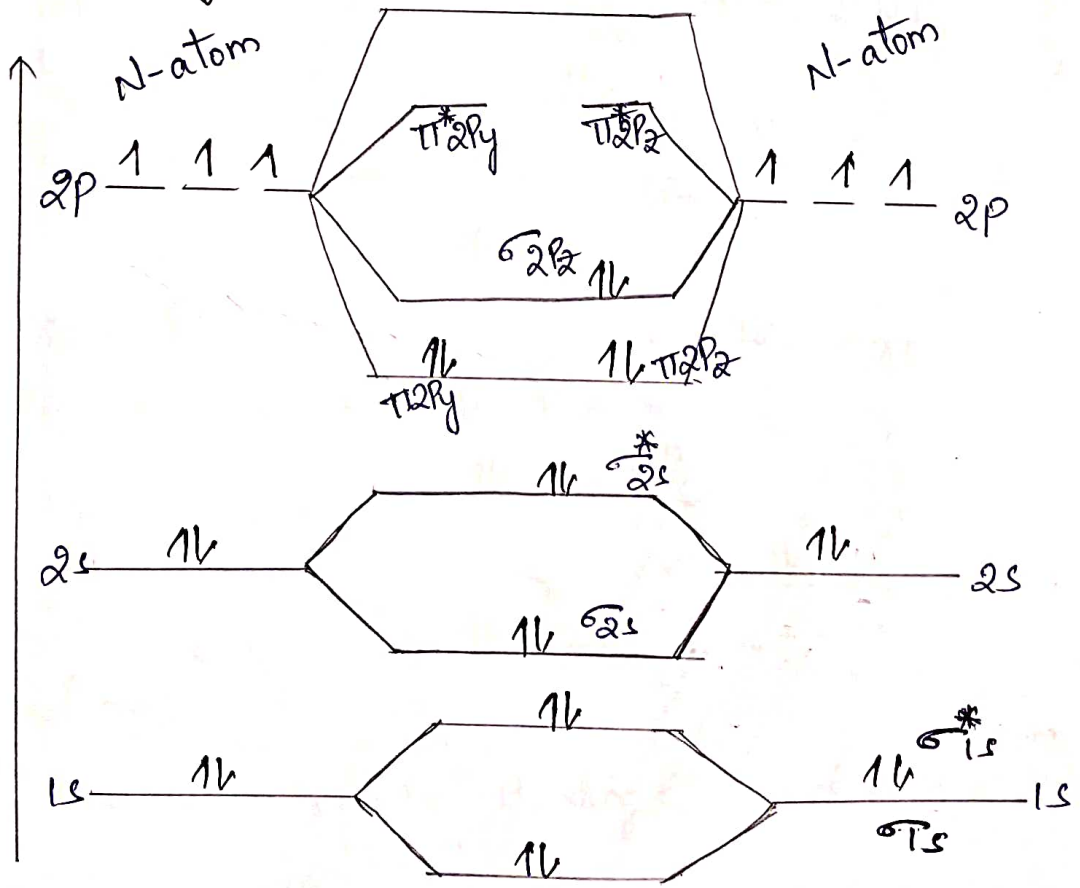 N-atom N-atom
π*2Py π*2Pz
2P 1 1 1 1 1 1 2P
σ2Pz 1L
1L 1L π2Pz
π2Py
1L σ*2s
2s 1L 1L 2s
1L σ2s
1L σ*1s
1s 1L 1L 1s
σ1s
1L